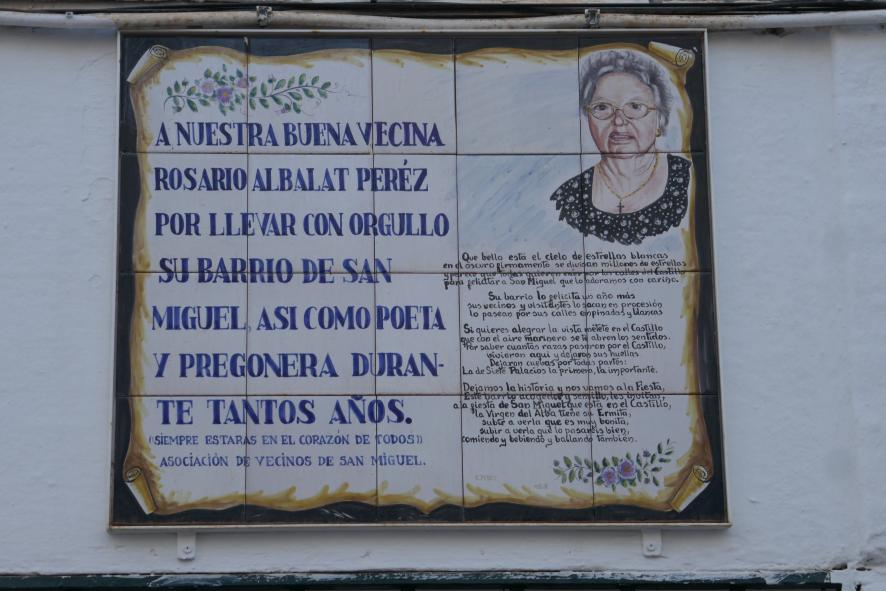 A NUESTRA BUENA VECINA
ROSARIO ALBALAT PERÉZ
POR LLEVAR CON ORGULLO
SU BARRIO DE SAN
MIGUEL, ASI COMO POETA
Y PREGONERA DURAN-
TE TANTOS AÑOS.
((SIEMPRE ESTARAS EN EL CORAZÓN DE TODOS))
ASOCIACIÓN DE VECINOS DE SAN MIGUEL.
Que bello está el cielo de estrellas blancas
en el oscuro firmamento se divisan millones de estrellas
y parece que todas quieren caer por las calles del Castillo
para felicitar a San Miguel que lo adoramos con cariño.
Su barrio lo felicita un año más
sus vecinos y visitantes lo sacan en procesión
lo pasean por sus calles empinadas y blancas
Si quieres alegrar la vista métete en el Castillo
que con el aire marinero se te abren los sentidos.
Por saber cuantas razas pasaron por el Castillo,
vivieron aquí y dejaron sus huellas.
Dejaron cuevas por todas partes:
La de Siete Palacios la primera, la importante.
Dejamos la historia y nos vamos a la Fiesta,
Este barrio acogedor y sencillo, les invitan,
a la fiesta de San Miguel que está en el Castillo,
la Virgen del Alba tiene su Ermita,
subir a verla que es muy bonita,
subir a verla que lo pasareis bien,
comiendo y bebiendo y bailando también.